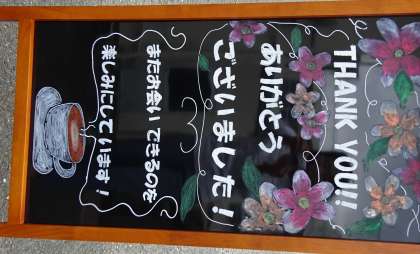 THANK YOU!!
ありがとう
ございました!
またお会いできるのを
楽しみにしています!